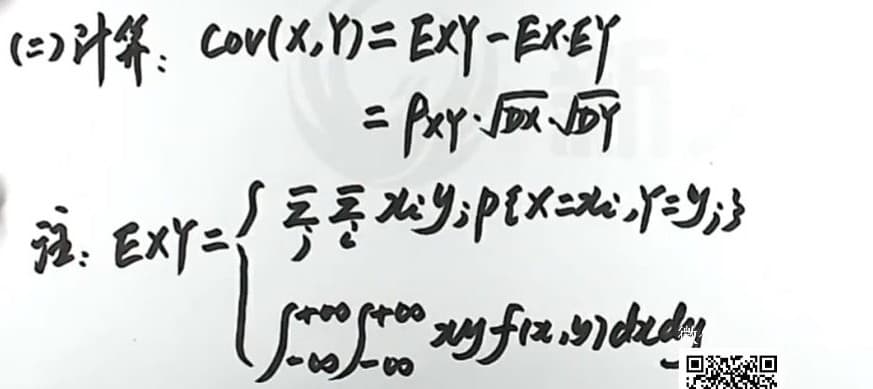 (二)计算: Cov(X,Y)=EXY-EX·EY
=ρXY·√DX·√DY
注: EXY={ ∑j ∑i xiyjP{X=xi,Y=yj}
∫-∞+∞∫-∞+∞ xyf(x,y)dxdy